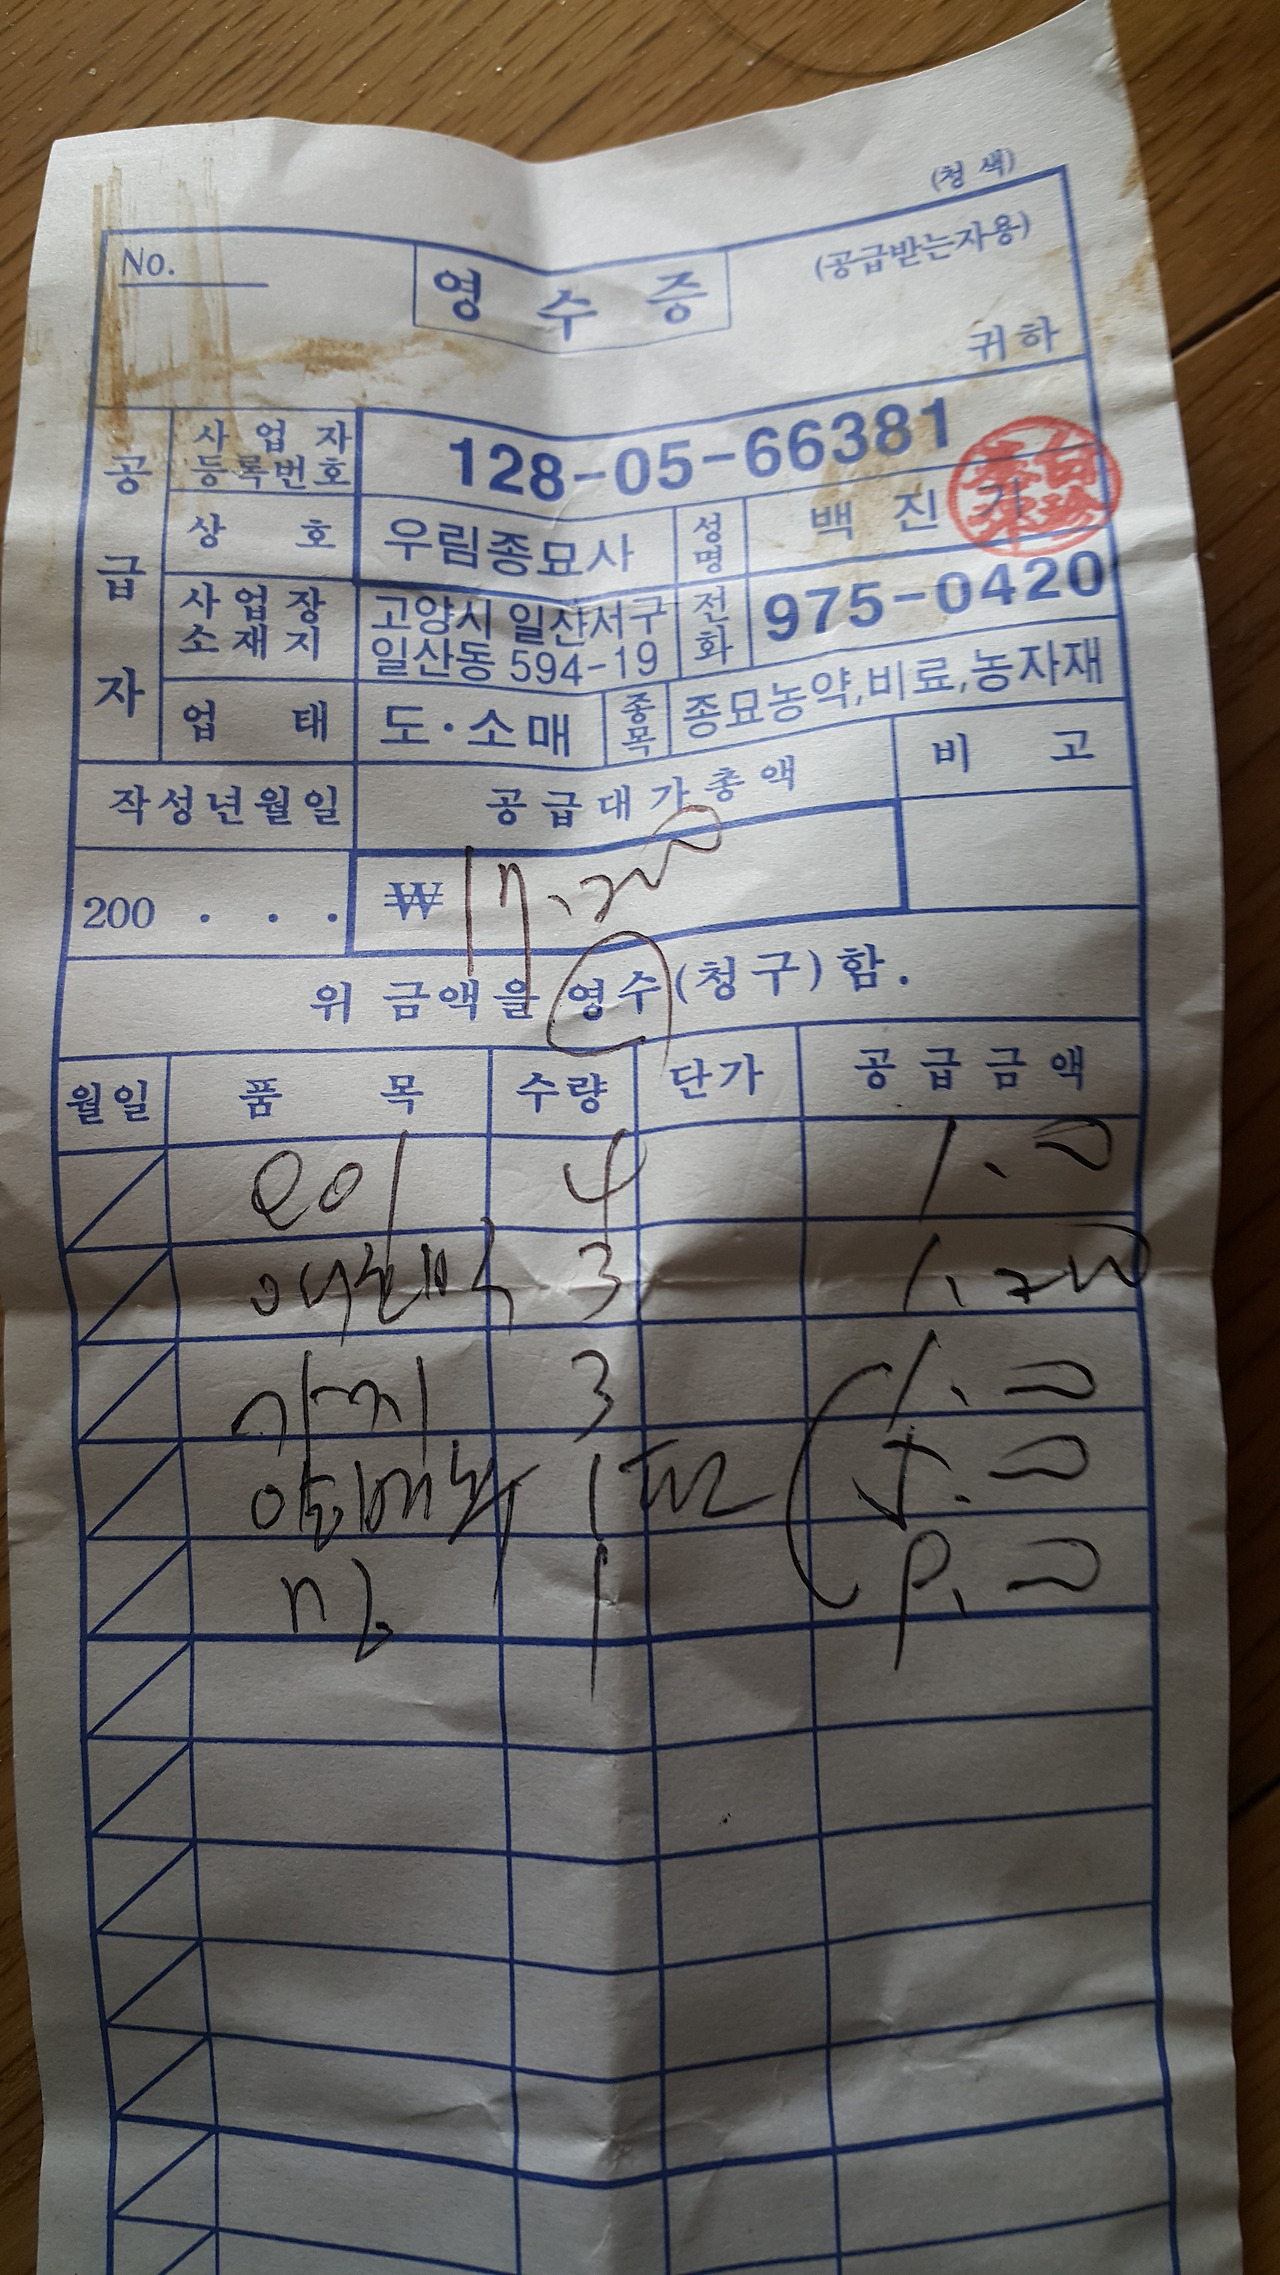 (청 색)
No.
영 수 증
(공급받는자용)
귀하
공급자
사업자등록번호 128-05-66381
상 호 우림종묘사 성명 백 진 기
사업장소재지 고양시 일산서구 일산동 594-19 전화 975-0420
업 태 도·소매 종목 종묘농약,비료,농자재
작성년월일 공급대가총액 비 고
200 . . . ₩ 17.200
위 금액을 영수(청구)함.
월일 품 목 수량 단가 공급금액
오이 4 1.0
3 1.200
가지 3 1.0
양배추 1 5.0
1 9.0